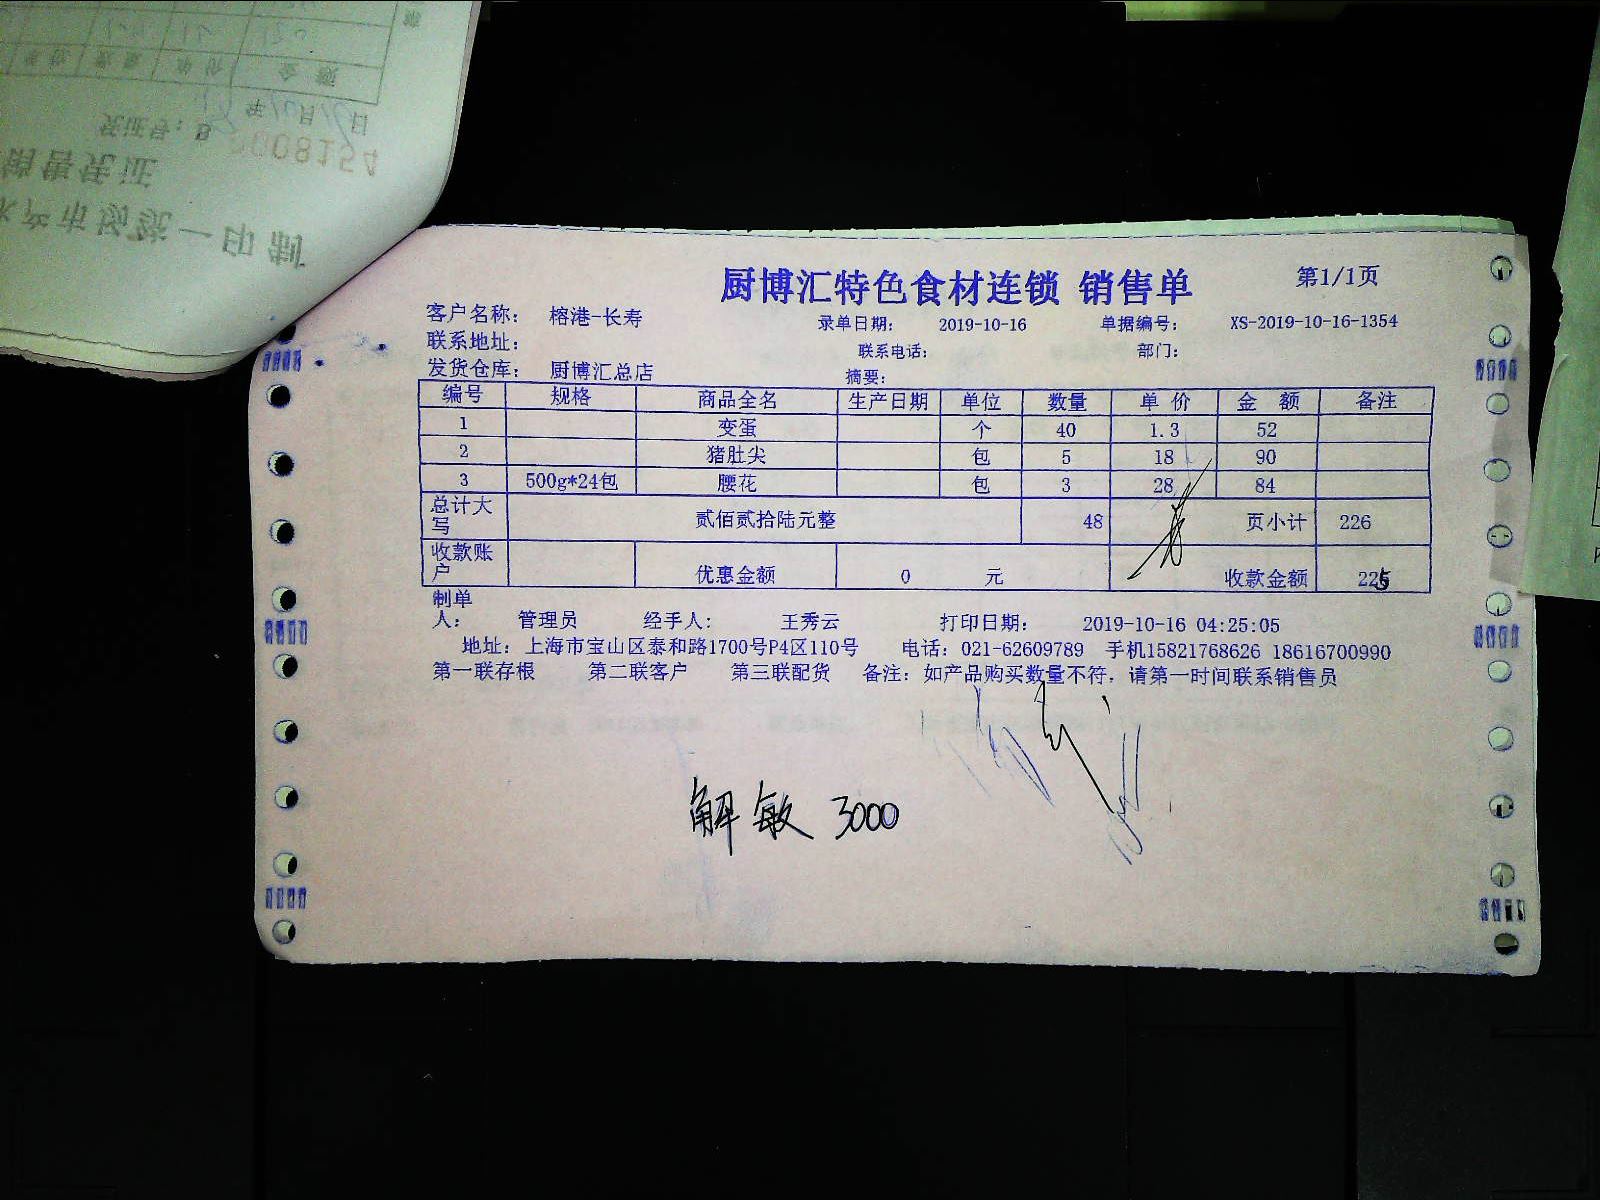 厨博汇特色食材连锁 销售单 第1/1页
客户名称： 榕港-长寿 录单日期： 2019-10-16 单据编号： XS-2019-10-16-1354
联系地址： 联系电话： 部门：
发货仓库： 厨博汇总店 摘要：
编号 规格 商品全名 生产日期 单位 数量 单 价 金 额 备注
1 变蛋 个 40 1.3 52
2 猪肚尖 包 5 18 90
3 500g*24包 腰花 包 3 28 84
总计大写 贰佰贰拾陆元整 48 页小计 226
收款账户 优惠金额 0 元 收款金额 225
制单人： 管理员 经手人： 王秀云 打印日期： 2019-10-16 04:25:05
地址：上海市宝山区泰和路1700号P4区110号 电话：021-62609789 手机15821768626 18616700990
第一联存根 第二联客户 第三联配货 备注：如产品购买数量不符，请第一时间联系销售员
解敏 3000
金 额
年10月16日
凭证号：B 2008154
销售凭证
水产市场统一印制